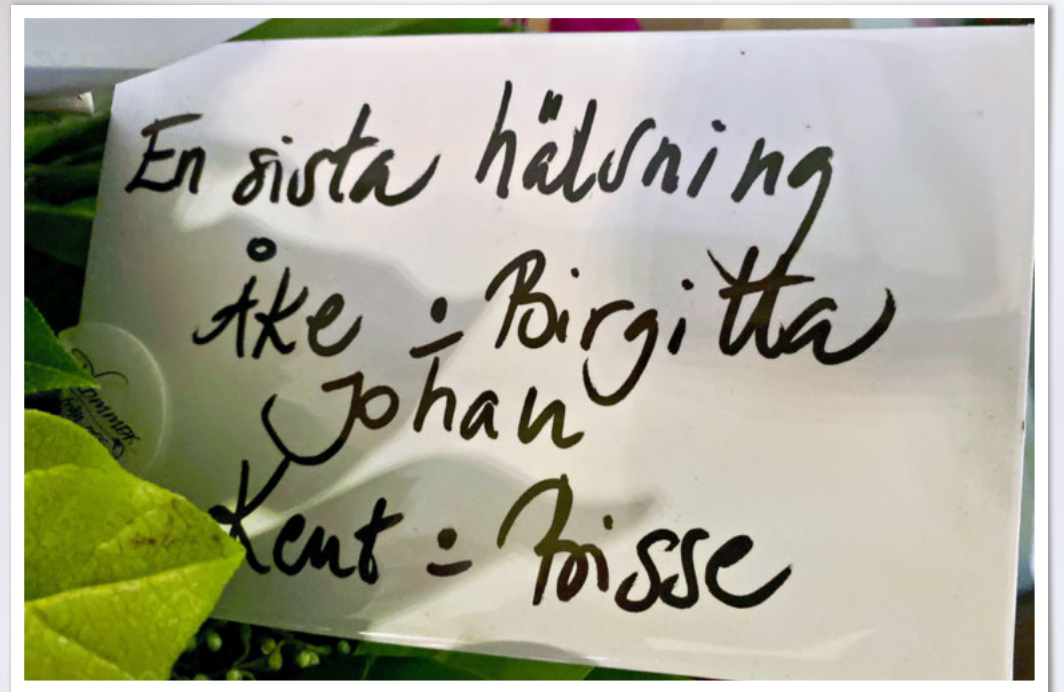 En sista hälsning
Åke ÷ Birgitta
Johan
Kent ÷ Bisse
Sommar